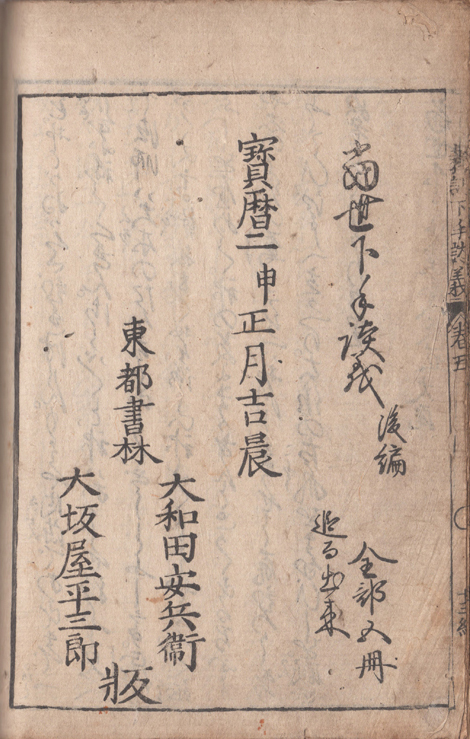 當世下手談義
後編
全部五冊
追而出来
寳暦二申正月吉辰
東都書林
大和田安兵衞
大坂屋平三郎
版
下手談義
巻五